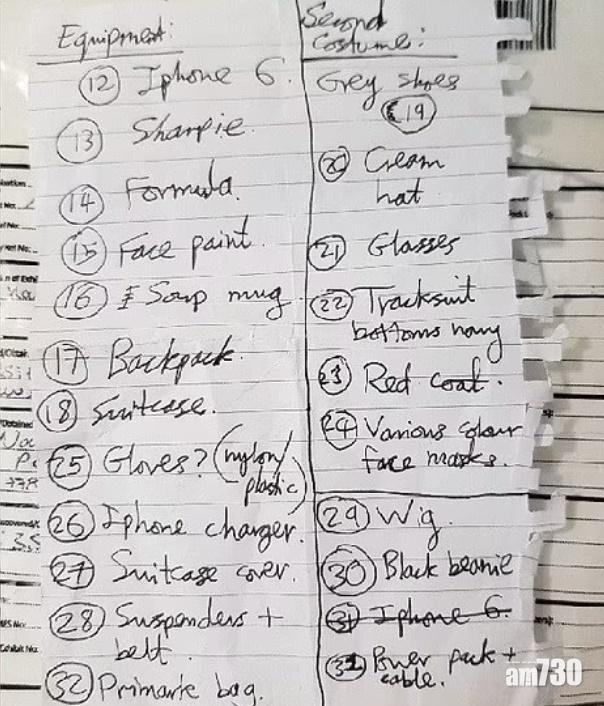 Equipment:
(12) Iphone 6.
(13) Sharpie.
(14) Formula.
(15) Face paint.
(16) Soup mug
(17) Backpack.
(18) Suitcase.
(25) Gloves? (nylon/
plastic)
(26) Iphone charger.
(27) Suitcase cover.
(28) Suspenders +
belt.
(32) Primark bag.
Second
Costume:
Grey shoes
(19)
(20) Cream
hat
(21) Glasses
(22) Tracksuit
bottoms navy
(23) Red coat.
(24) Various colour
face masks.
(29) Wig.
(30) Black beanie
(31) Iphone 6.
(31) Power pack +
cable.
am730